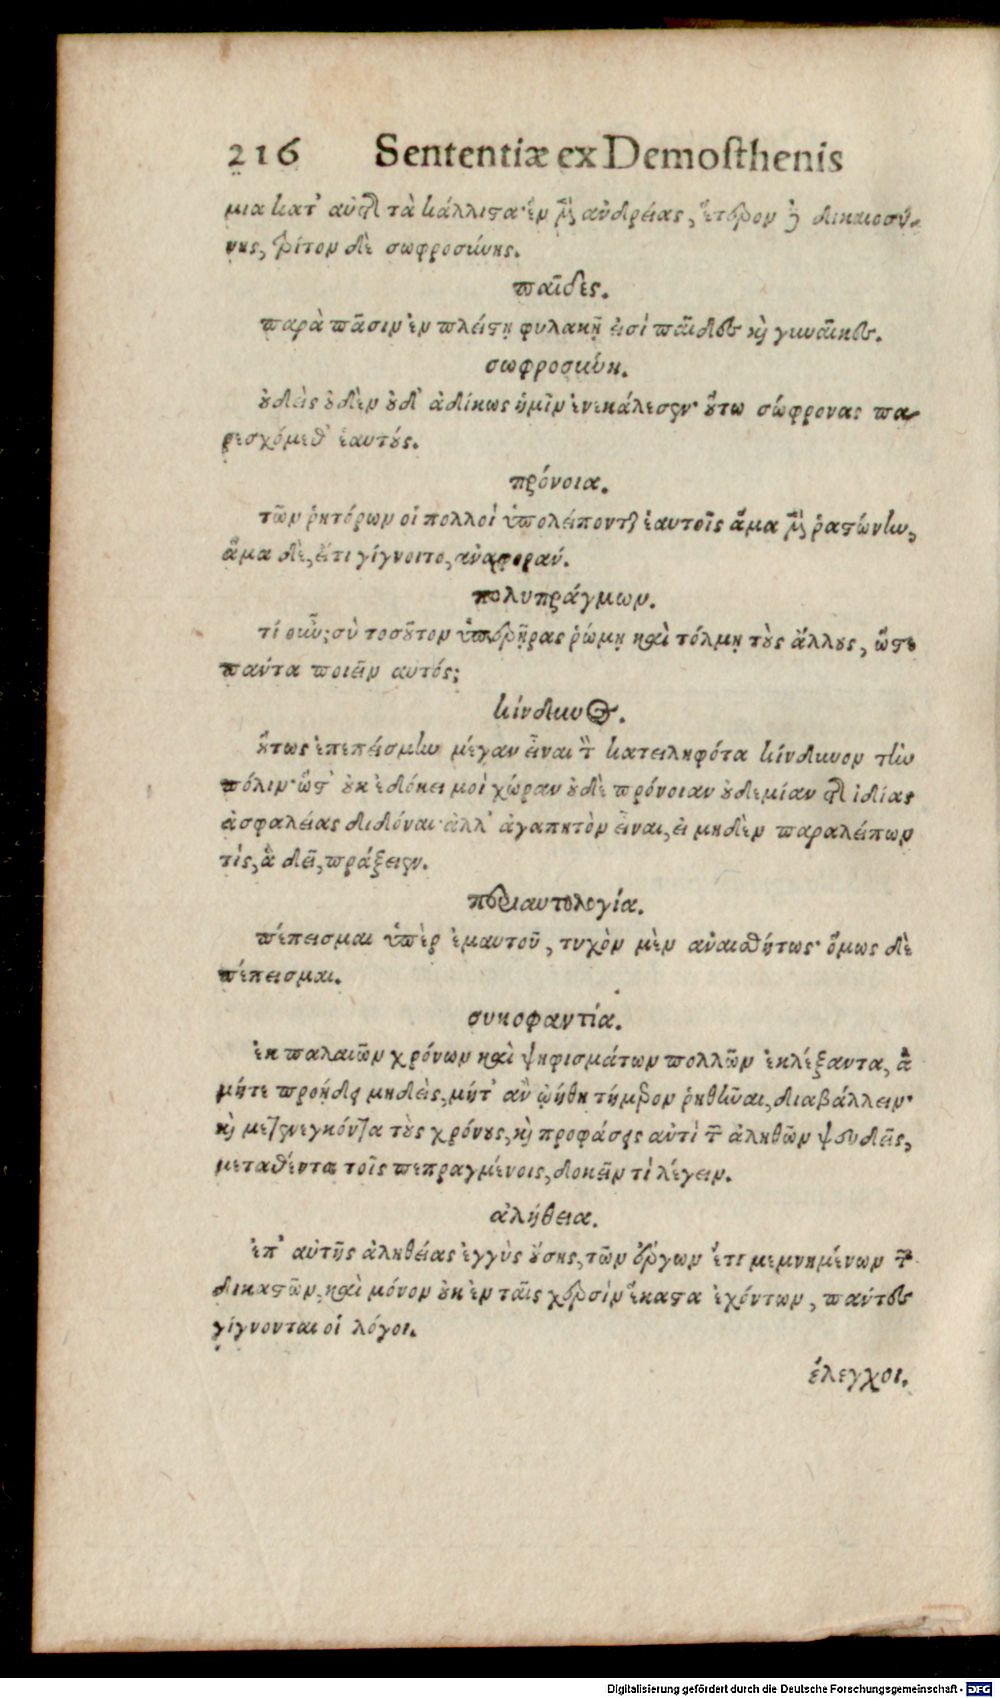 216 Sententiæ ex Demosthenis
μια κατ' αὐτοῦ τὰ κάλλιστα· ἓν μὲν ἀνδρείας, ἕτερον δὲ δικαιοσύ-
νης, τρίτον δὲ σωφροσύνης.
παῖδες.
παρὰ πᾶσιν ἐν πλείστῃ φυλακῇ εἰσὶ παῖδες καὶ γυναῖκες.
σωφροσύνη.
οὐδεὶς οὐδὲν οὐδ' ἀδίκως ἡμῖν ἐνεκάλεσεν· οὕτω σώφρονας πα-
ρεσχόμεθ' ἑαυτούς.
πρόνοια.
τῶν ῥητόρων οἱ πολλοὶ ὑπολείπονται ἑαυτοῖς ἅμα μὲν ῥαστώνην,
ἅμα δὲ, εἴ τι γίγνοιτο, ἀναφοράν.
πολυπράγμων.
τί οὖν; σὺ τοσοῦτον ὑπερῇρας ῥώμῃ καὶ τόλμῃ τοὺς ἄλλους, ὥστε
πάντα ποιεῖν αυτός;
κίνδυνος.
οὕτως ἐπεπείσμην μέγαν εἶναι τὸν κατειληφότα κίνδυνον τὴν
πόλιν· ὥστ' οὐκ ἐδόκει μοὶ χώραν οὐδὲ πρόνοιαν οὐδεμίαν τῆς ἰδίας
ἀσφαλείας διδόναι· ἀλλ' ἀγαπητὸν εἶναι, εἰ μηδὲν παραλείπων
τὶς, ἃ δεῖ, πράξειεν.
περιαυτολογία.
πέπεισμαι ὑπὲρ ἐμαυτοῦ, τυχὸν μὲν ἀναισθήτως· ὅμως δὲ
πέπεισμαι.
συκοφαντία.
ἐκ παλαιῶν χρόνων καὶ ψηφισμάτων πολλῶν ἐκλέξαντα, ἃ
μήτε προῄδει μηδεὶς, μήτ' ἂν ᾠήθη τήμερον ῥηθῆναι, διαβάλλειν·
καὶ μετενεγκόντα τοὺς χρόνους, καὶ προφάσεις ἀντὶ τῶν ἀληθῶν ψευδεῖς,
μεταθέντα τοῖς πεπραγμένοις, δοκεῖν τὶ λέγειν.
ἀλήθεια.
ἐπ' αὐτῆς ἀληθείας ἐγγὺς οὔσης, τῶν ἔργων ἔτι μεμνημένων τῶν
δικαστῶν, καὶ μόνον οὐκ ἐν ταῖς χερσὶν ἕκαστα ἐχόντων, πάντες
γίγνονται οἱ λόγοι.
ἐλεγχοι.
Digitalisierung gefördert durch die Deutsche Forschungsgemeinschaft - DFG